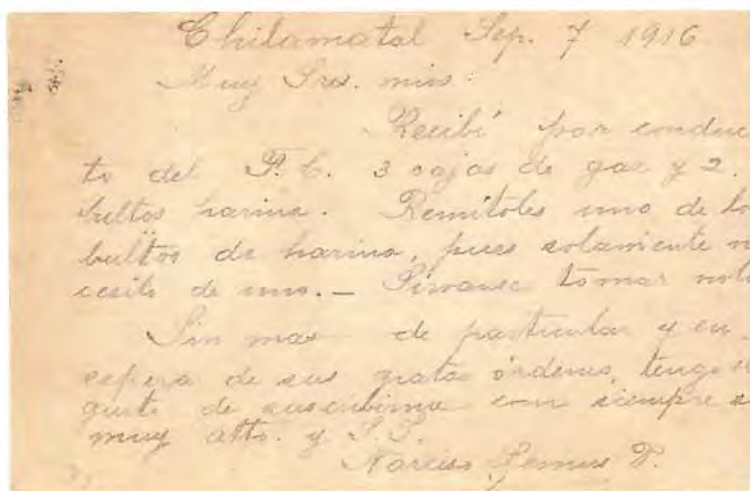 Chilamatal Sep. 7 1916
Muy Sres. mios:
Recibí por conduc
to del F. C. 3 cajas de gas y 2.
bultos harina. Remítoles uno de lo
bultos de harina, pues solamente n
cesito de uno. — Sírvanse tomar nota
Sin mas de particular y en
espera de sus gratas órdenes, tengo el
gusto de suscribirme com siempre s
muy atto. y S. S.
Narciso Lemus P.